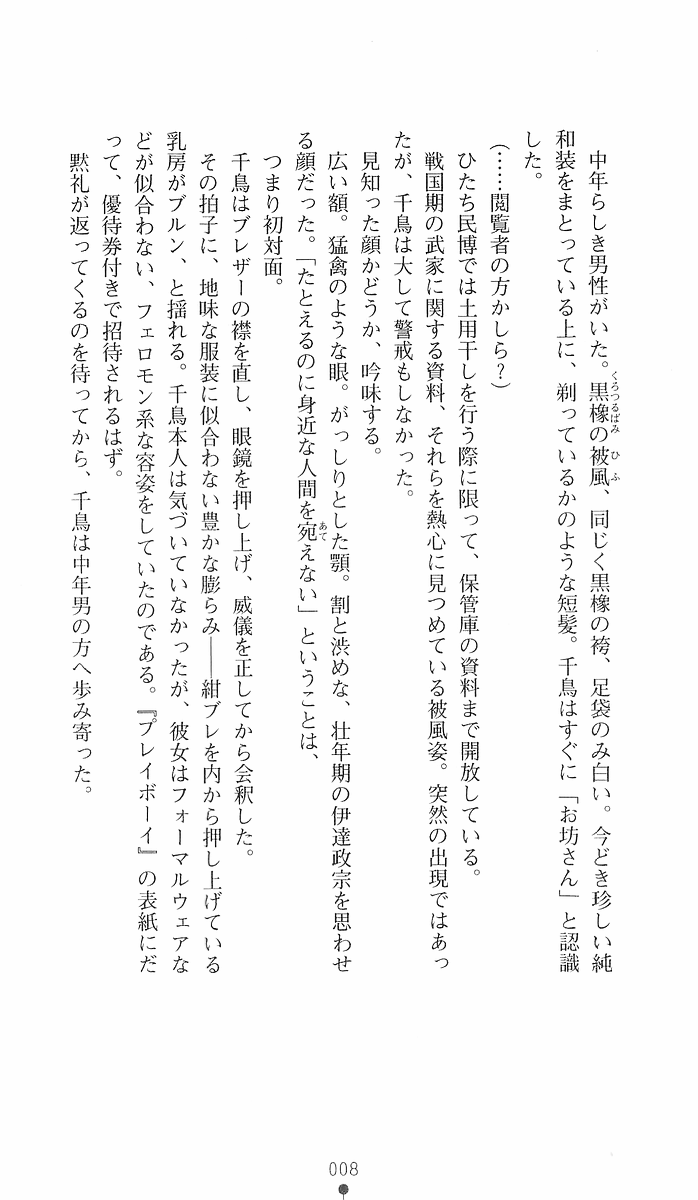 中年らしき男性がいた。黒橡の被風、同じく黒橡の袴、足袋のみ白い。今どき珍しい純
和装をまとっている上に、剃っているかのような短髪。千鳥はすぐに「お坊さん」と認識
した。
(……閲覧者の方かしら?)
ひたち民博では土用干しを行う際に限って、保管庫の資料まで開放している。
戦国期の武家に関する資料、それらを熱心に見つめている被風姿。突然の出現ではあっ
たが、千鳥は大して警戒もしなかった。
見知った顔かどうか、吟味する。
広い額。猛禽のような眼。がっしりとした顎。割と渋めな、壮年期の伊達政宗を思わせ
る顔だった。「たとえるのに身近な人間を宛えない」ということは、
つまり初対面。
千鳥はブレザーの襟を直し、眼鏡を押し上げ、威儀を正してから会釈した。
その拍子に、地味な服装に似合わない豊かな膨らみ――紺ブレを内から押し上げている
乳房がブルン、と揺れる。千鳥本人は気づいていなかったが、彼女はフォーマルウェアな
どが似合わない、フェロモン系な容姿をしていたのである。『プレイボーイ』の表紙にだ
って、優待券付きで招待されるはず。
黙礼が返ってくるのを待ってから、千鳥は中年男の方へ歩み寄った。
くろつるばみ
ひふ
あて
008